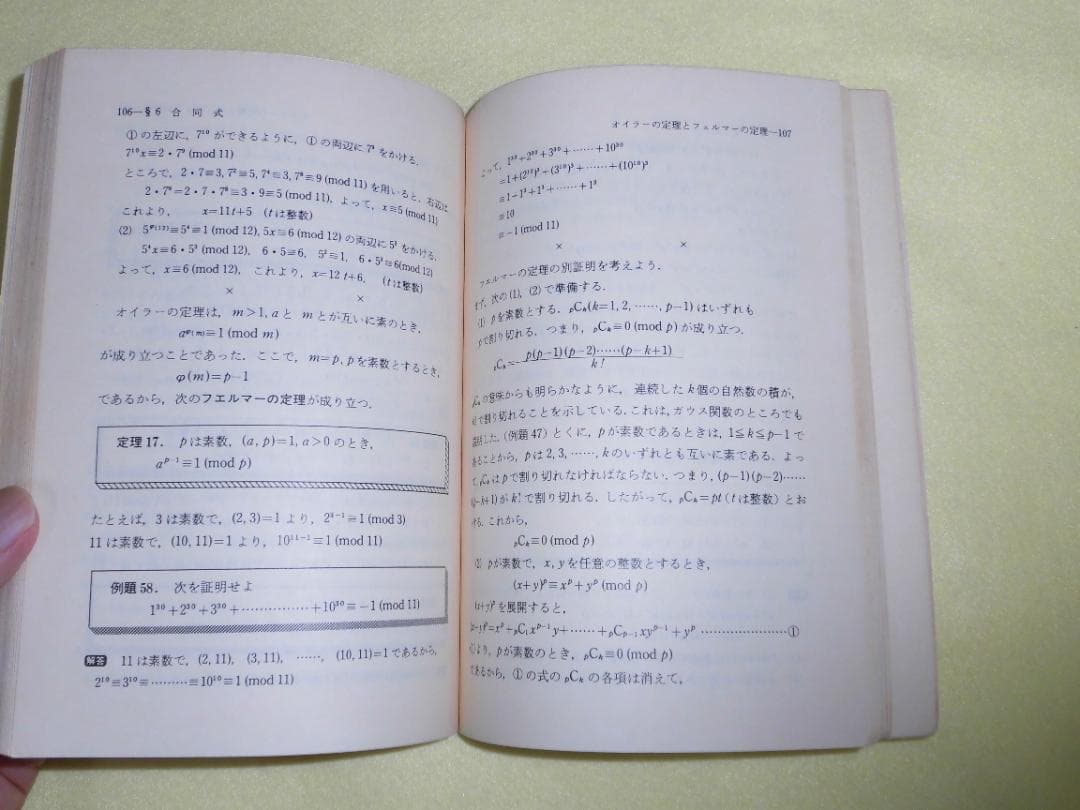 106—§6 合同式
①の左辺に,7¹⁰ができるように,①の両辺に7⁹をかける.
7¹⁰x≡2・7⁹(mod 11)
ところで,2・7≡3,7²≡5,7⁴≡3,7⁸≡9(mod 11)を用いると,右辺は
2・7⁹=2・7・7⁸≡3・9≡5(mod 11),よって,x≡5(mod 11)
これより, x=11t+5 (tは整数)
(2) 5^φ(12)≡5⁴≡1(mod 12),5x≡6(mod 12)の両辺に5³をかける.
5⁴x≡6・5³(mod 12), 6・5≡6, 5²≡1, 6・5³≡6(mod 12)
よって,x≡6(mod 12), これより,x=12t+6, (tは整数)
× ×
オイラーの定理は,m>1,aとmとが互いに素のとき,
a^φ(m)≡1(mod m)
が成り立つことであった.ここで,m=p,pを素数とするとき,
φ(m)=p−1
であるから,次のフェルマーの定理が成り立つ.
定理17. pは素数,(a,p)=1,a>0のとき,
a^p−1≡1(mod p)
たとえば,3は素数で,(2,3)=1より,2³⁻¹≡1(mod 3)
11は素数で,(10,11)=1より,10¹¹⁻¹≡1(mod 11)
例題58. 次を証明せよ
1³⁰+2³⁰+3³⁰+……………+10³⁰≡−1(mod 11)
解答 11は素数で,(2,11),(3,11),……,(10,11)=1であるから,
2¹⁰≡3¹⁰≡………≡10¹⁰≡1(mod 11)
オイラーの定理とフェルマーの定理—107
よって,1³⁰+2³⁰+3³⁰+……+10³⁰
≡1+(2¹⁰)³+(3¹⁰)³+……+(10¹⁰)³
≡1+1³+1³+……+1³
≡10
≡−1(mod 11)
× ×
フェルマーの定理の別証明を考えよう.
まず,次の(1),(2)で準備する.
(1) pを素数とする.pCk(k=1,2,……,p−1)はいずれも
pで割り切れる.つまり,pCk≡0(mod p)が成り立つ.
pCk=p(p−1)(p−2)……(p−k+1)/k!
pCkの意味からも明らかなように,連続したk個の自然数の積が,
k!で割り切れることを示している.これは,ガウス関数のところでも
した.(例題47)とくに,pが素数であるときは,1≦k≦p−1で
あることから,pは2,3,……,kのいずれとも互いに素である.よっ
て,pCkはpで割り切れなければならない.つまり,(p−1)(p−2)……
(p−k+1)がk!で割り切れる.したがって,pCk=pt(tは整数)とお
ける.これから,
pCk≡0(mod p)
(2) pが素数で,x,yを任意の整数とするとき,
(x+y)^p≡x^p+y^p(mod p)
(x+y)^pを展開すると,
(x+y)^p=x^p+pC₁x^p−1y+……+pCp−1xy^p−1+y^p……………………①
(1)より,pが素数のとき,pCk≡0(mod p)
であるから,①の式のpCkの各項は消えて,